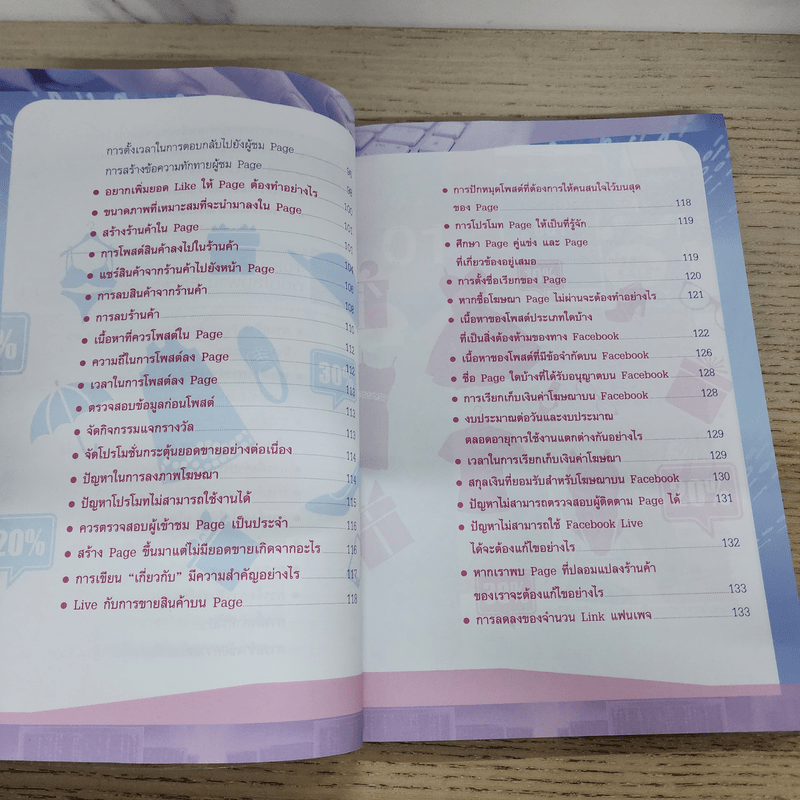 การตั้งเวลาในการตอบกลับไปยังผู้ชม Page
การสร้างข้อความทักทายผู้ชม Page 98
• อยากเพิ่มยอด Like ให้ Page ต้องทำอย่างไร 99
• ขนาดภาพที่เหมาะสมที่จะนำมาลงใน Page 100
• สร้างร้านค้าใน Page 101
• การโพสต์สินค้าลงไปในร้านค้า
• แชร์สินค้าจากร้านค้าไปยังหน้า Page 104
• การลบสินค้าจากร้านค้า 106
• การลบร้านค้า 108
• เนื้อหาที่ควรโพสต์ใน Page 110
• ความถี่ในการโพสต์ลง Page 112
• เวลาในการโพสต์ลง Page 112
• ตรวจสอบข้อมูลก่อนโพสต์ 113
• จัดกิจกรรมแจกรางวัล 113
• จัดโปรโมชั่นกระตุ้นยอดขายอย่างต่อเนื่อง 114
• ปัญหาในการลงภาพโฆษณา 114
• ปัญหาโปรโมทไม่สามารถใช้งานได้ 115
• ควรตรวจสอบผู้เข้าชม Page เป็นประจำ 116
• สร้าง Page ขึ้นมาแต่ไม่มียอดขายเกิดจากอะไร 116
• การเขียน “เกี่ยวกับ” มีความสำคัญอย่างไร 117
• Live กับการขายสินค้าบน Page 118
• การปักหมุดโพสต์ที่ต้องการให้คนสนใจไว้บนสุด
ของ Page 118
• การโปรโมท Page ให้เป็นที่รู้จัก 119
• ศึกษา Page คู่แข่ง และ Page
ที่เกี่ยวข้องอยู่เสมอ 119
• การตั้งชื่อเรียกของ Page 120
• หากซื้อโฆษณา Page ไม่ผ่านจะต้องทำอย่างไร 121
• เนื้อหาของโพสต์ประเภทใดบ้าง
ที่เป็นสิ่งต้องห้ามของทาง Facebook 122
• เนื้อหาของโพสต์ที่มีข้อจำกัดบน Facebook 126
• ชื่อ Page ใดบ้างที่ได้รับอนุญาตบน Facebook 128
• การเรียกเก็บเงินค่าโฆษณาบน Facebook 128
• งบประมาณต่อวันและงบประมาณ
ตลอดอายุการใช้งานแตกต่างกันอย่างไร 129
• เวลาในการเรียกเก็บเงินค่าโฆษณา 129
• สกุลเงินที่ยอมรับสำหรับโฆษณาบน Facebook 130
• ปัญหาไม่สามารถตรวจสอบผู้ติดตาม Page ได้ 131
• ปัญหาไม่สามารถใช้ Facebook Live
ได้จะต้องแก้ไขอย่างไร 132
• หากเราพบ Page ที่ปลอมแปลงร้านค้า
ของเราจะต้องแก้ไขอย่างไร 133
• การลดลงของจำนวน Link แฟนเพจ 133